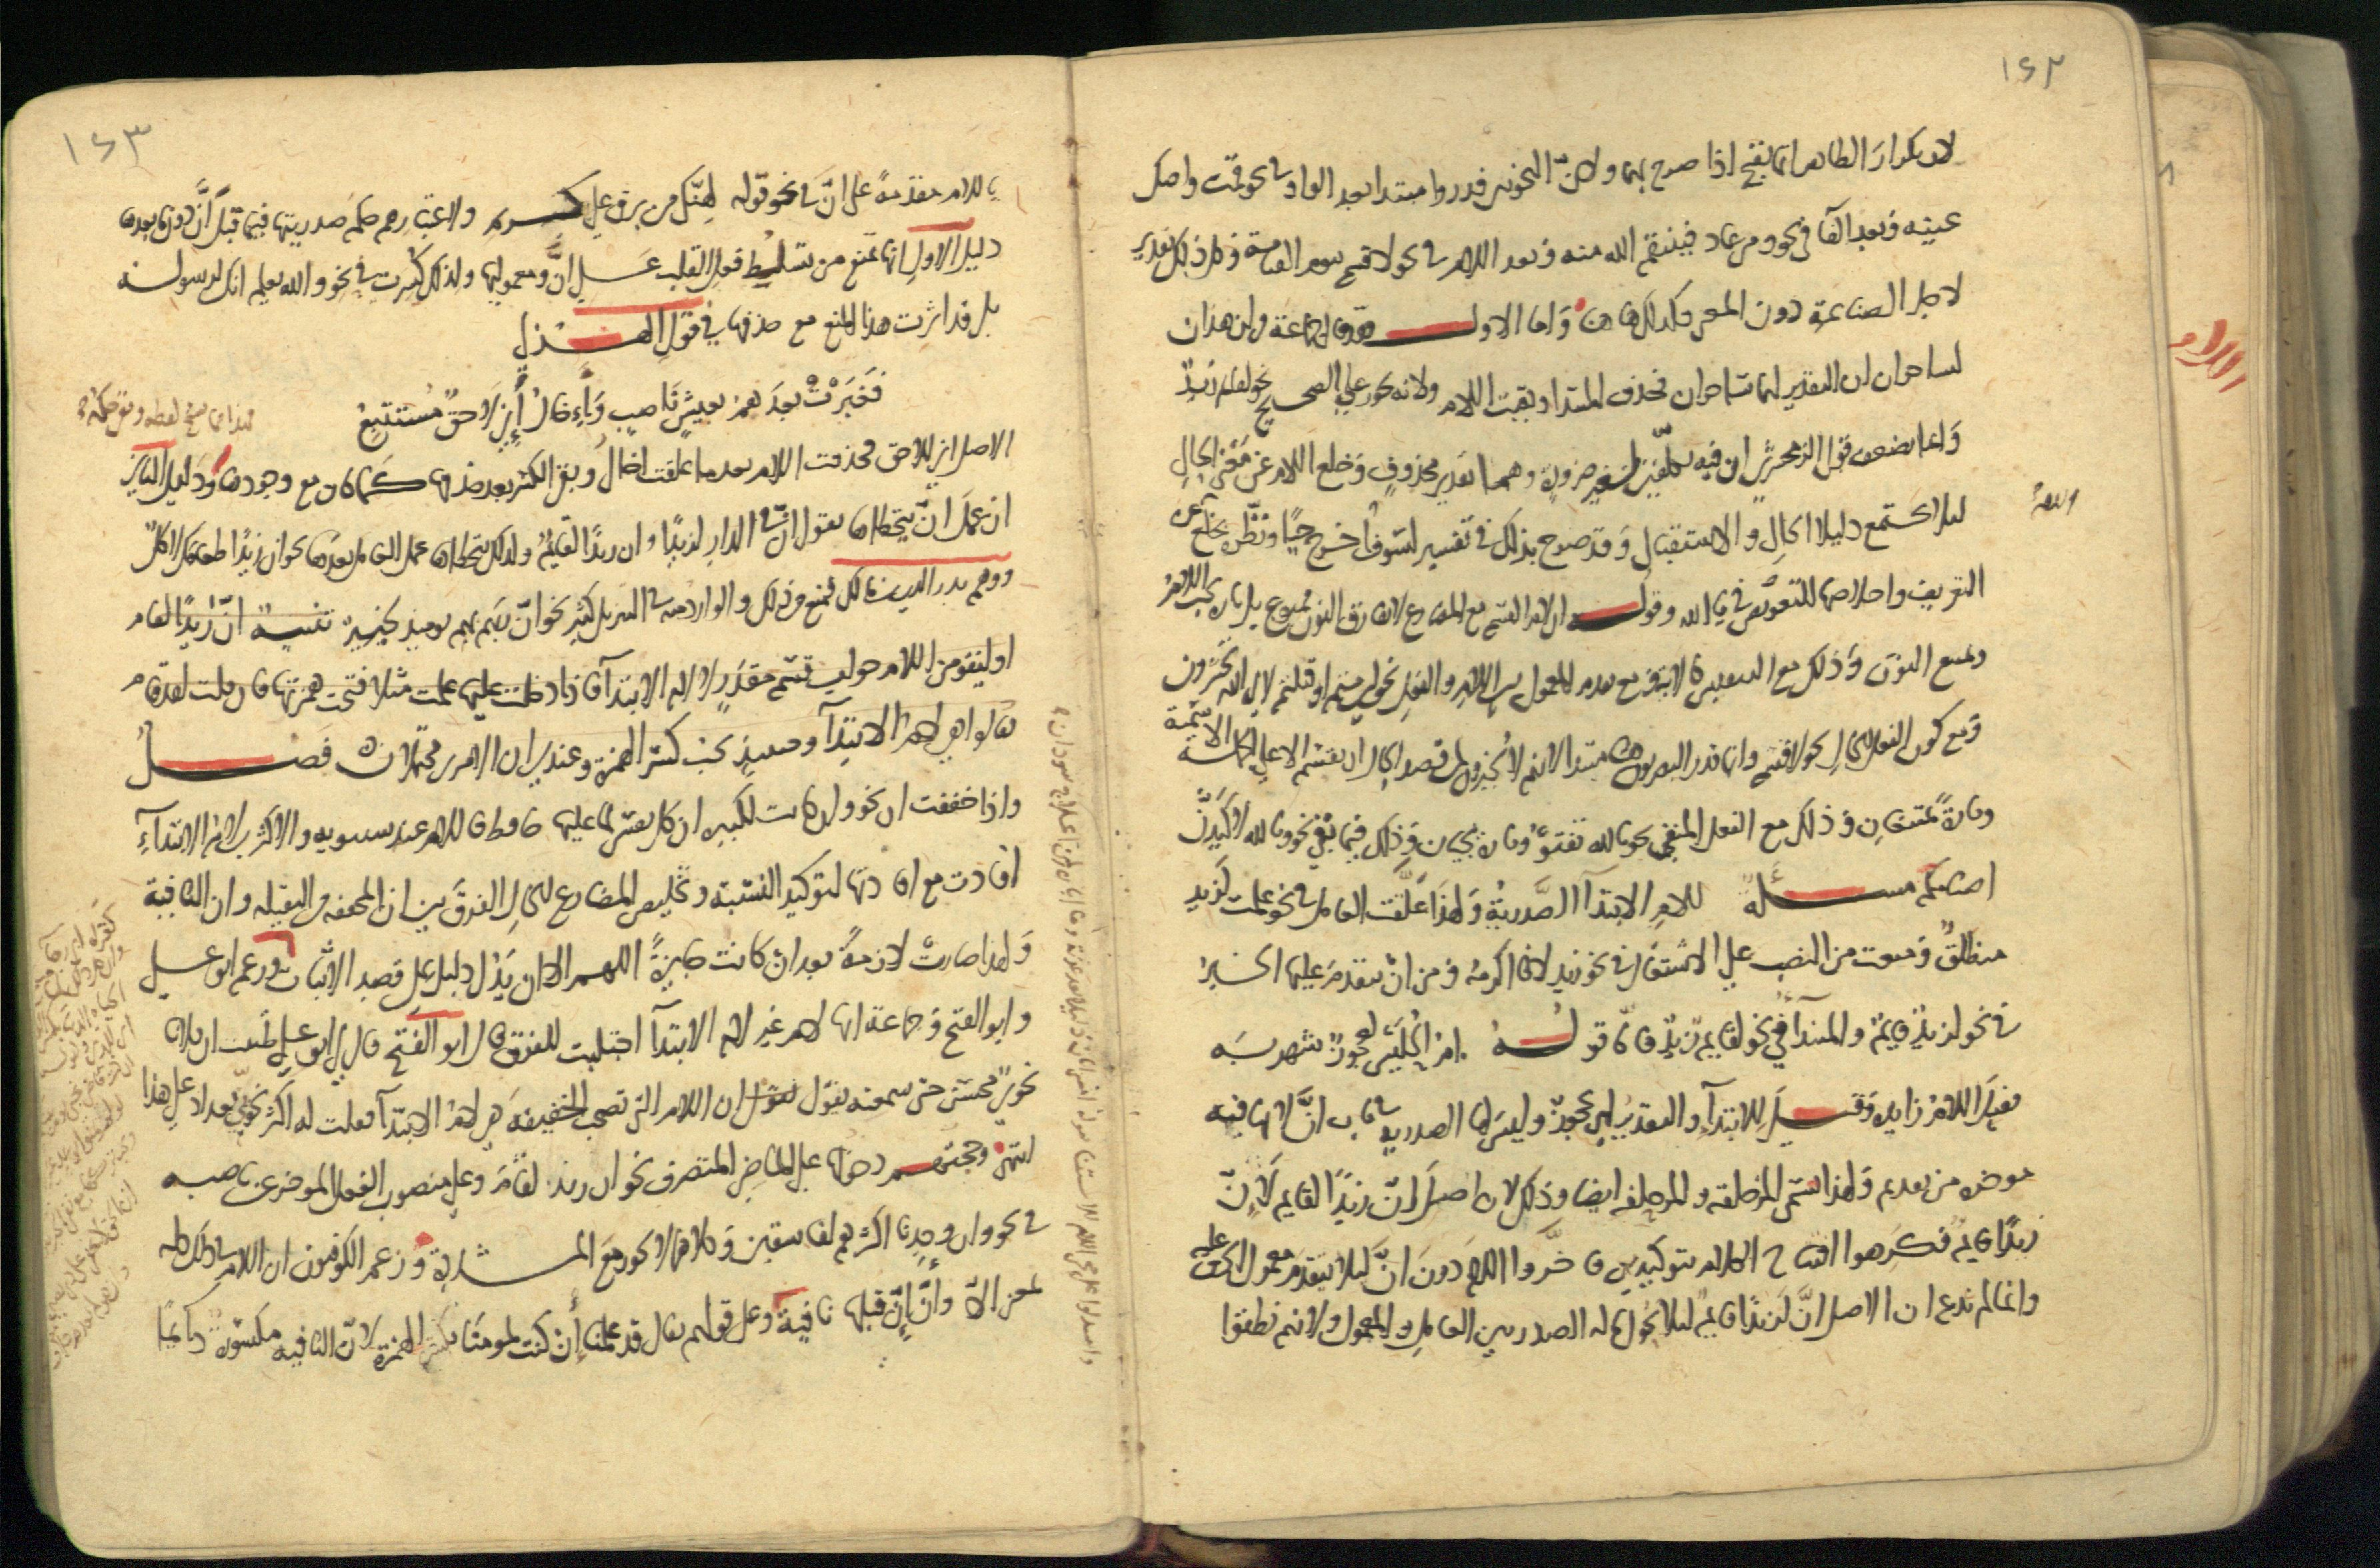 ١٤٢
لان تكرار الظاهر انما يقبح اذا صرح بهما ولان النحويين قدروا مبتدا بعد الواو في نحو قمت واصك
عينه وبعد الفا في نحو ومن عاد فينتقم الله منه وبعد اللام في نحو لا قسم بيوم القيامة وكل ذلك تقدير
لاجل الصناعة دون المعنى فكذلك هاهنا واما الاول فقد قال جماعة في ان هذان
لساحران ان التقدير لهما ساحران فحذف المبتدا وبقيت اللام ولانه يجوز على الصحيح نحو لقايم زيد
وانما يضعف قول الزمخشري ان فيه تكلفين لغير ضرورة وهما تقدير محذوف وخلع اللام عن معنى الحال
ليلا يجتمع دليلا الحال والاستقبال وقد صرح بذلك في تفسير لسوف اخرج حيا ونظره بخلع اللام عن
التعريف واخلاصها للتعويض في يا الله وقوله ان لام القسم مع المضارع لا تفارق النون ممنوع بل تارة تجب اللام
وتمتنع النون وذلك مع التنفيس كالاية ومع تقدم المعمول بين اللام والفعل نحو ولين متم او قتلتم لالى الله تحشرون
ومع كون الفعل للحال نحو لاقسم وانما قدر البصريون هنا مبتدا لانهم لا يجيزون لمن قصد الحال ان يقسم الا على الجملة الاسمية
وتارة يمتنعان وذلك مع الفعل المنفي نحو تالله تفتؤ وتارة يجبان وذلك فيما بقي نحو وتالله لاكيدن
اصنامكم مسألة للام الابتدآ الصدرية ولهذا علقت العامل في نحو علمت لزيد
منطلق ومنعت من النصب على الاشتغال في نحو زيد لانا اكرمه ومن ان يتقدم عليها الخبر
في نحو لزيد قايم والمبتدأ في نحو لقايم زيد فاما قوله ام الحليس لعجوز شهربه
فقيل اللام زايده وقيل للابتدآ والتقدير لهي عجوز وليس لها الصدرية في باب ان لانها فيه
موخره من تقديم ولهذا تسمى المزحلقه والمزحلفه ايضا وذلك لان اصل ان زيدا لقايم لان
زيدا قايم فكرهوا افتتاح الكلام بتوكيدين فاخروا اللام دون ان ليلا يتقدم معمول الحرف عليه
وانما لم ندع ان الاصل ان لزيدا قايم ليلا يحول ماله الصدر بين العامل والمعمول ولانهم نطقوا
١٤٣
باللام مقدمة على ان في نحو قوله لهنك من برق علي كريم ولاعتبارهم حكم صدريتها فيما قبل ان دون ما بعدها
دليل الاول انها تمنع من تسليط فعل القلب على ان ومعموليها ولذلك كسرت في نحو والله يعلم انك لرسوله
بل قد اثرت هذا المنع مع حذفها في قول الهذلي
فَغَبَرْتُ بعدهم بعيش ناصب واِخال إنّي لاحق مستتبع
الاصل اني للاحق فحذفت اللام بعد ما علقت اخال وبقي الكسر بعد حذفها كما كان مع وجودها ودليل الثاني
ان عمل ان يتخطاها تقول ان في الدار لزيدا وان زيدا لقايم ولذلك يتخطاها عمل العامل بعدها نحو ان زيدا طعامك لاكل
ووهم بدر الدين بن مالك فمنع من ذلك والوارد منه في التنزيل كثير نحو ان ربهم بهم يوميذ لخبير تنبيه ان زيدا لقام
او ليقومن اللام جواب قسم مقدر لا لام الابتدآ فاذا دخلت عليها علمت مثلا فتحت همزتها فان قلت لقد قام
فقالوا هي لام الابتدآ وحينيذ يجب كسر الهمزة وعندي ان الامرين محتملان فصل
واذا خففت ان نحو وان كانت لكبيره ان كل نفس لما عليها حافظ فاللام عند سيبويه والاكثرين لام الابتدآء
افادت مع افادتها لتوكيد النسبته وتخليص المضارع للحال الفرق بين ان المخففه من الثقيله وان النافية
ولهذا صارت لازمة بعد ان كانت جايزة اللهم الا ان يدل دليل على قصد الاثبات وزعم ابو علي
وابو الفتح وجماعة انها لام غير لام الابتدآ اجتلبت للفرق قال ابو الفتح قال لي ابو علي ظننت ان فلانا
نحوي محسن حتى سمعته يقول ان اللام التي تصحب الخفيفة هي لام الابتدآ فقلت له اكثر نحويي بغداد على هذا
انتهى وحجتهم دخولها على الماضي المتصرف نحو ان زيد لقام وعلى منصوب الفعل الموخر عن ناصبه
في نحو وان وجدنا اكثرهم لفاسقين وكلاهما لا يجوز مع المشددة وزعم الكوفيون ان اللام في ذلك كله
بمعنى الا وأن إن قبلها نافية وعلى قولهم يقال قد علمنا إن كنت لمومنا بكسر الهمزة لان النافيه مكسورة دايما